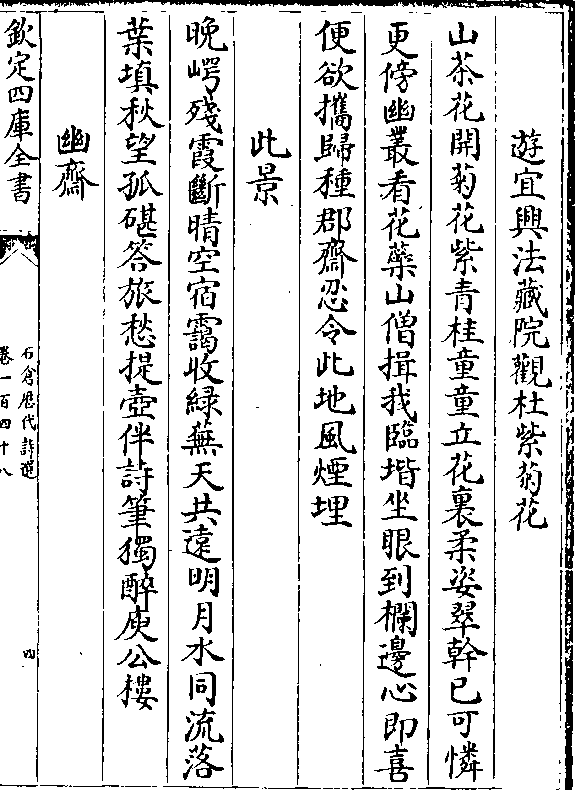 遊宜興法藏院觀杜紫菊花
山茶花開菊花紫青桂童童立花裏柔姿翠幹已可憐
更傍幽叢看花蘂山僧揖我臨堦坐眼到欄邊心即喜
便欲攜歸種郡齋忍令此地風煙埋
此景
晚崿殘霞斷晴空宿靄收緑蕪天共遠明月水同流落
葉填秋望孤碪答旅愁提壺伴詩筆獨醉庾公樓
幽齋
欽定四庫全書
石倉歷代詩選
卷一百四十八
四